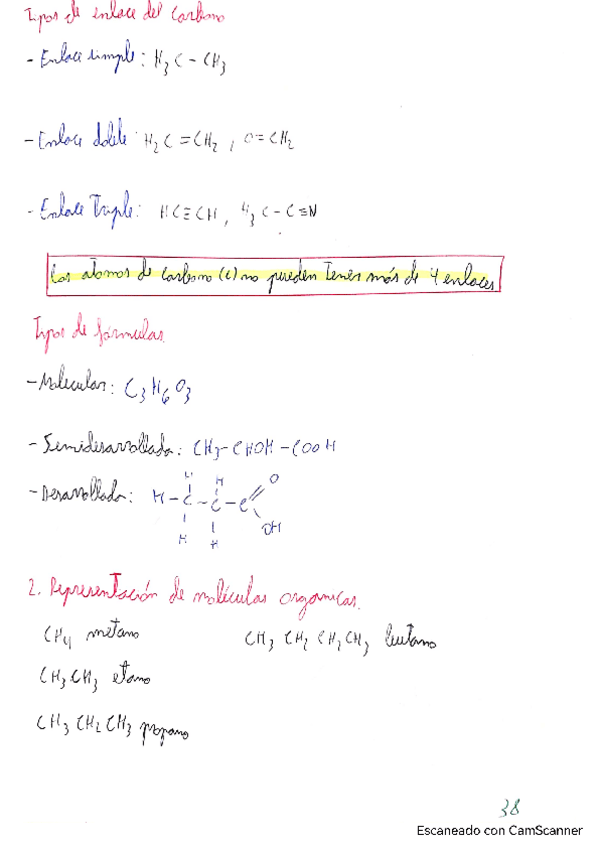 Tipos de enlace del Carbono
- Enlace simple: H3C - CH3
- Enlace doble: H2C = CH2, O=CH2
- Enlace Triple: HC≡CH, H3C-C≡N
Los atomos de Carbono (C) no pueden tener más de 4 enlaces
Tipos de fórmulas.
- Molecular: C3H6O3
- Semidesarrollada: CH3-CHOH-COOH
- Desarrollada: H-C-C-C
H H O
H H OH
2. Representación de moléculas organicas.
CH4 metano CH3 CH2 CH2 CH3 butano
CH3CH3 etano
CH3 CH2 CH3 propano
38
Escaneado con CamScanner